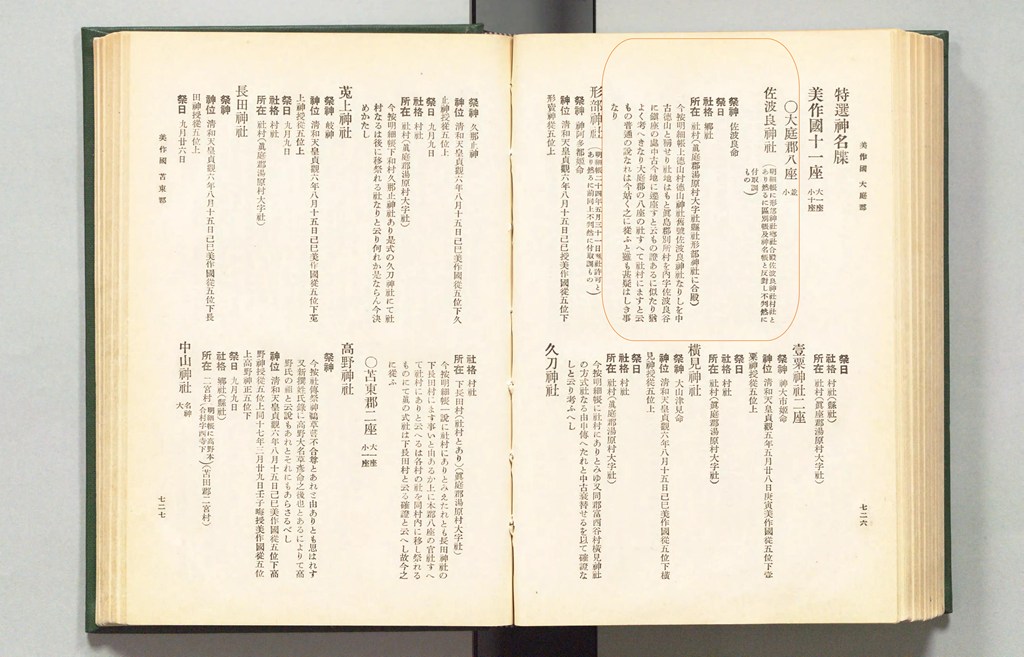 美作國 大庭郡
特選神名牒
美作國十一座 大一座 小十座
〇大庭郡八座 並小
佐波良神社
明細帳に形部神社鄕社合殿佐波良神社村社と
あり然るに區別帳及神名帳と反對し不判然に
付取調もの
祭神 佐波良命
祭日
社格 鄕社
所在 社村(眞庭郡湯原村大字社縣社形部神社に合殿)
今按明細帳上德山村德山神社舊號佐波良神社なりしを中
古德山と稱せり社地はもと眞島郡別所村を內字佐波良谷
に鎭座の處中古今地に遷座すと云もの證あるに似たり猶
よく考へきなり大庭郡の八座の社すへて社村にますと云
もの普通の說なれは今姑く之に從ふと雖も甚疑はしき事
なり
形部神社
明細帳二十四年五月三十一日縣社許可と
あり然るに前同上不判然に付取調もの
祭神 神阿多都姬命
神位 淸和天皇貞觀六年八月十五日己巳授美作國從五位下
形賣神從五位上
祭日
社格 村社(縣社)
所在 社村(眞庭郡湯原村大字社)
壹粟神社二座
祭神 神大市姬命
神位 淸和天皇貞觀五年五月廿八日庚寅美作國從五位下壹
粟神授從五位上
祭日
社格 村社
所在 社村(眞庭郡湯原村大字社)
橫見神社
祭神 大山津見命
神位 淸和天皇貞觀六年八月十五日己巳美作國從五位下橫
見神授從五位上
祭日
社格 村社
所在 社村(眞庭郡湯原村大字社)
今按明細帳に社村にありとみゆ又同郡富西谷村橫見神社
の方式社なる由申傳へたれと中古衰替せるを以て確證な
しと云り考ふへし
久刀神社
七二六
祭神 久那止神
神位 淸和天皇貞觀六年八月十五日己巳美作國從五位下久
止神授從五位上
祭日 九月九日
社格 村社
所在 社村(眞庭郡湯原村大字社)
今按明細帳下和村久那止神社あり是式の久刀神社にて社
村なるは後に移祭れる社なりと云り何れか是ならん今決
めかたし
菟上神社
祭神 岐神
神位 淸和天皇貞觀六年八月十五日己巳美作國從五位下菟
上神授從五位上
祭日 九月九日
社格 村社
所在 社村(眞庭郡湯原村大字社)
長田神社
祭神
神位 淸和天皇貞觀六年八月十五日己巳美作國從五位下長
田神授從五位上
祭日 九月廿六日
美作國 苫東郡
社格 村社
所在 下長田村(社村とあり)(眞庭郡湯原村大字社)
今按明細帳一說に社村にありとみえたれとも長田神社の
下長田村にます事いと由あるか上に本郡八座の官社すへ
て社村にありと云へるは各村の社を同村內に移し祭れる
ものにて眞の式社は下長田村と云る確證と云へし故今之
に從ふ
〇苫東郡二座 大一座 小一座
高野神社
祭神
今按社傳祭神鵜草葺不合尊とあれと由ありとも思はれす
又新撰姓氏錄に高野大名草彥命之後也とあるによりて高
野氏の祖と云說もあれとそれにもあらさるへし
神位 淸和天皇貞觀六年八月十五日己巳美作國從五位下高
野神授從五位上同十七年三月廿九日壬子晦授美作國從五位
上高野神正五位下
祭日 九月九日
社格 鄕社(縣社)
所在 二宮村
明細帳に高野本
合村字西寺下
(苫田郡二宮村)
中山神社 名神大
七二七